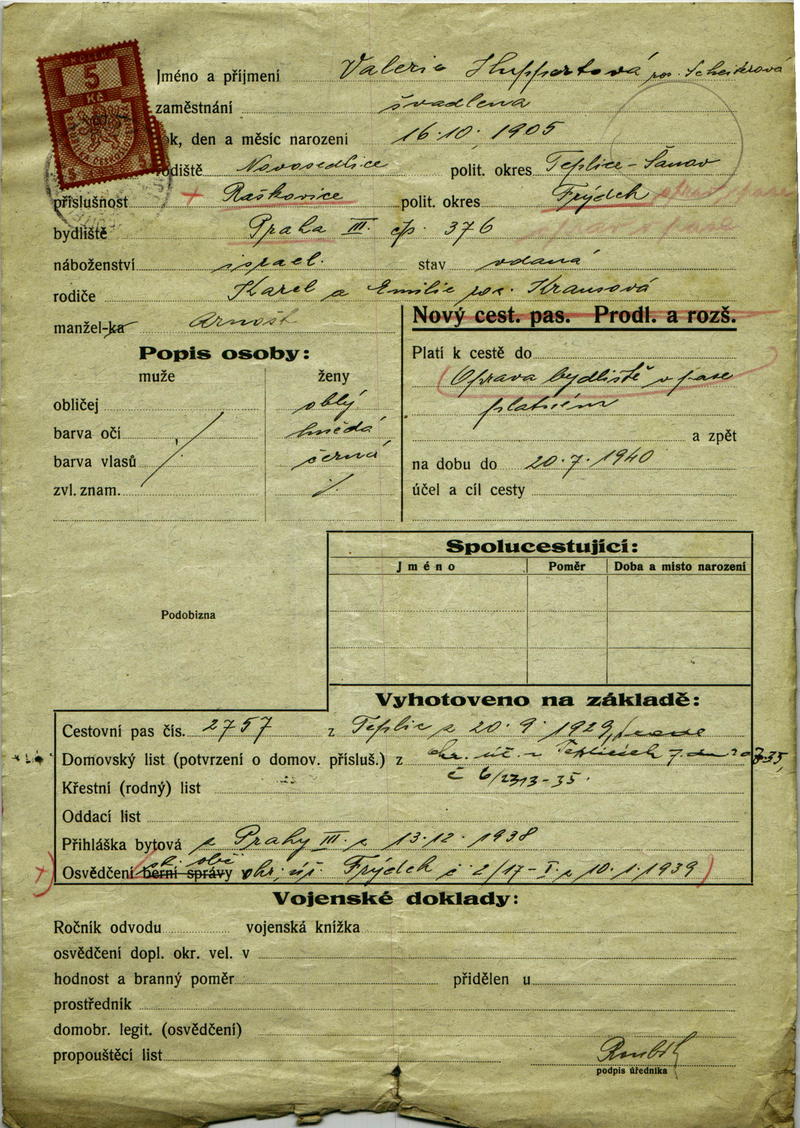 5
Kč
5 5
Jméno a příjmení Valerie Huppertová roz.
zaměstnání švadlena
rok, den a měsíc narození 16. 10. 1905
rodiště Novosedlice polit. okres Teplice-Šanov
příslušnost + Raškovice polit. okres Frýdek oprav v pase
bydliště Praha III. čp. 376 oprav v pase
náboženství israel. stav vdaná
rodiče Karel a Emilie roz. Krausová
manžel-ka Arnošt
Nový cest. pas. Prodl. a rozš.
Popis osoby:
muže ženy
obličej oblý
barva očí hnědá
barva vlasů černá
zvl. znam. ./.
Platí k cestě do
Oprava bydliště v pase
platném
a zpět
na dobu do 20. 7. 1940
účel a cíl cesty
Spolucestující:
Jméno Poměr Doba a místo narození
Podobizna
Vyhotoveno na základě:
Cestovní pas čís. 2757 z Teplic z 20. 9. 1929
Domovský list (potvrzení o domov. přísluš.) z okr. úř. v Teplicích
č 6/2313-35.
Křestní (rodný) list
Oddací list
Přihláška bytová z Prahy III. z 13. 12. 1938
Osvědčení berní správy st. obč. okr. úř. Frýdek č 2/17-I. z 10. 1. 1939
Vojenské doklady:
Ročník odvodu vojenská knížka
osvědčení dopl. okr. vel. v
hodnost a branný poměr přidělen u
prostředník
domobr. legit. (osvědčení)
propouštěcí list
podpis úředníka